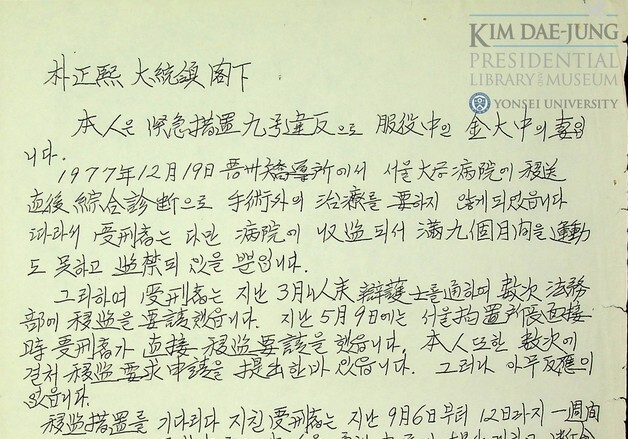 KIM DAE-JUNG
PRESIDENTIAL
LIBRARY AND MUSEUM
YONSEI UNIVERSITY
朴正熙 大統領 閣下
本人은 緊急措置九号違反으로 服役中인 金大中의 妻입
니다.
1977年12月19日 晋州矯導所에서 서울大学病院에 移送
直後 綜合診断으로 手術外의 治療를 要하지 않게되었읍니다
따라서 受刑者는 다만 病院에 收監되어 滿九個月间을 運動
도 못하고 監禁되 있을 뿐입니다.
그리하여 受刑者는 지난 3月4人末 辯護士를通하여 數次 法務
部에 移監을 要請했읍니다. 지난 5月9日에는 서울拘置所長面接
時 受刑者가 直接 移監要請을 했읍니다. 本人 또한 數次에
걸처 移監要求申請을 提出한바 있읍니다. 그러나 아무反應이
없읍니다.
移監措置를 기다리다 지친 受刑者는 지난 9月6日부터 12日까지 一週间